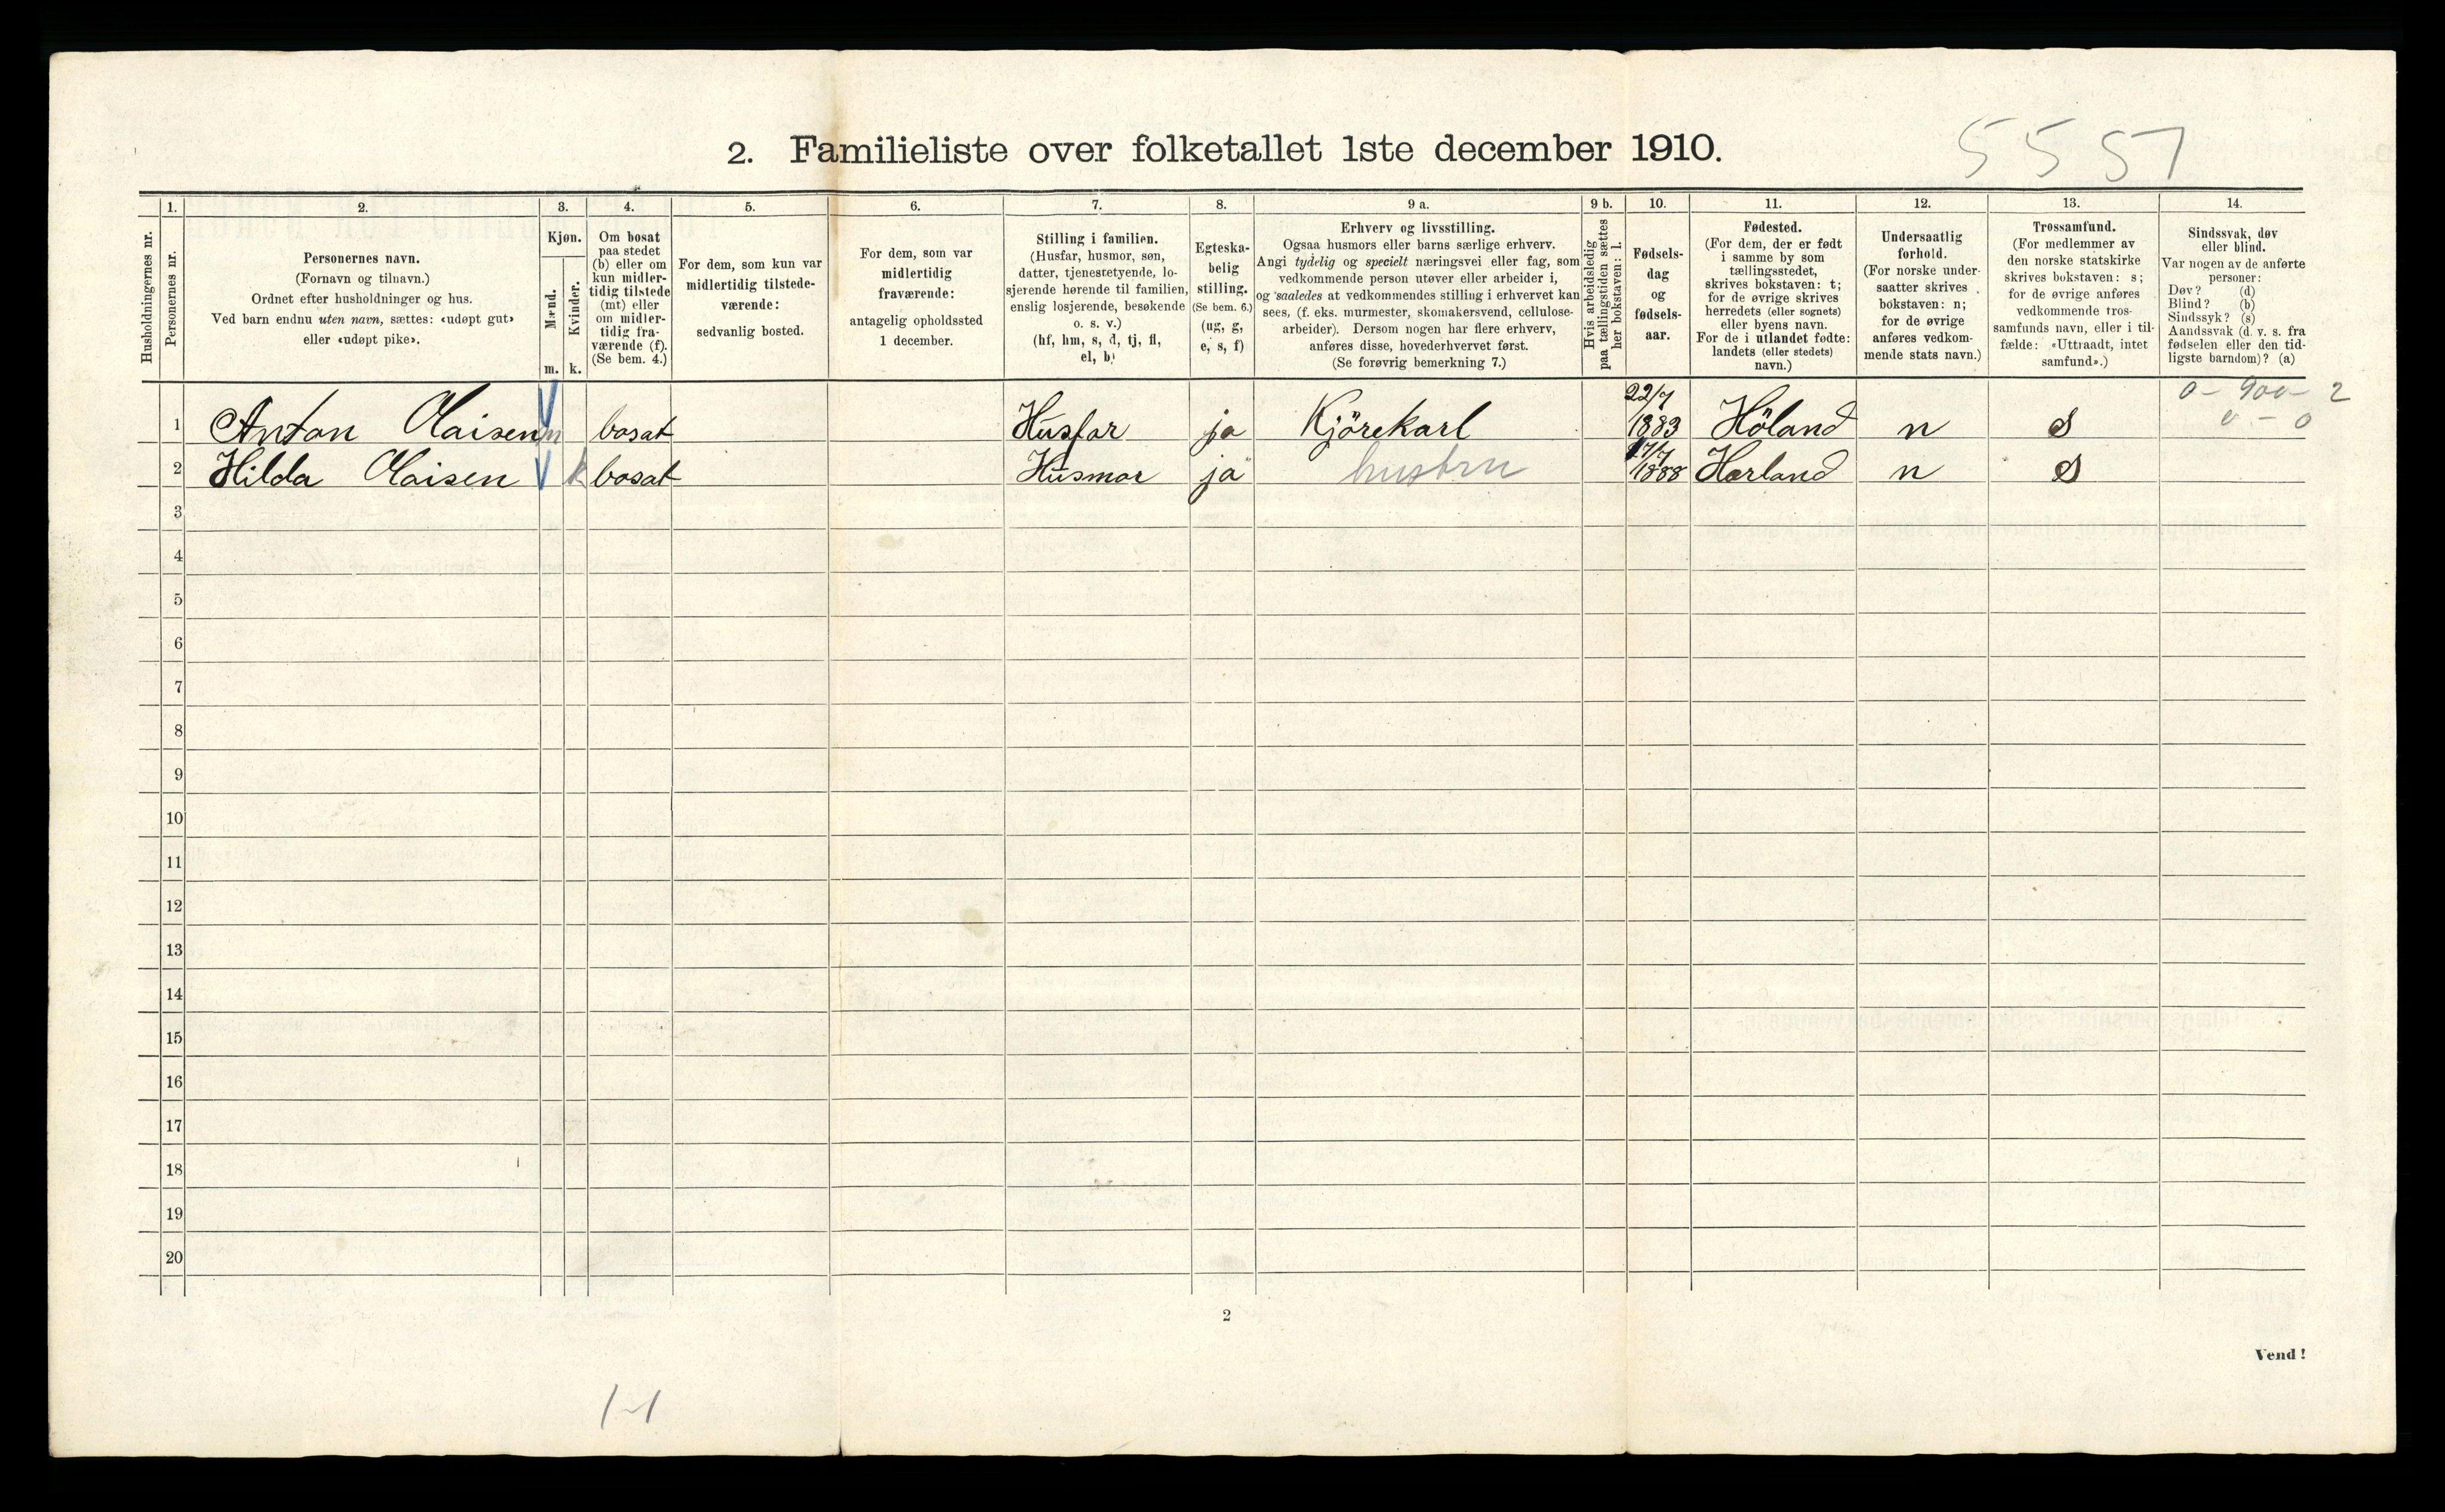 5557
2. Familieliste over folketallet 1ste december 1910.
Husholdningernes nr.
1.
Personernes nr.
2.
Personernes navn.
(Fornavn og tilnavn.)
Ordnet efter husholdninger og hus.
Ved barn endnu uten navn, sættes: «udøpt gut»
eller «udøpt pike».
3.
Kjøn.
Mænd.
Kvinder.
m. k.
4.
Om bosat
paa stedet
(b) eller om
kun midler-
tidig tilstede
(mt) eller
om midler-
tidig fra-
værende (f).
(Se bem. 4.)
5.
For dem, som kun var
midlertidig tilstede-
værende:
sedvanlig bosted.
6.
For dem, som var
midlertidig
fraværende:
antagelig opholdssted
1 december.
7.
Stilling i familien.
(Husfar, husmor, søn,
datter, tjenestetyende, lo-
sjerende hørende til familien,
enslig losjerende, besøkende
o. s. v.)
(hf, hm, s, d, tj, fl,
el, b)
8.
Egteska-
belig
stilling.
(Se bem. 6.)
(ug, g,
e, s, f)
9 a.
Erhverv og livsstilling.
Ogsaa husmors eller barns særlige erhverv.
Angi tydelig og specielt næringsvei eller fag, som
vedkommende person utøver eller arbeider i,
og saaledes at vedkommendes stilling i erhvervet kan
sees, (f. eks. murmester, skomakersvend, cellulose-
arbeider). Dersom nogen har flere erhverv,
anføres disse, hovederhvervet først.
(Se forøvrig bemerkning 7.)
9 b.
Hvis arbeidsledig
paa tællingstiden sættes
her bokstaven: l.
10.
Fødsels-
dag
og
fødsels-
aar.
11.
Fødested.
(For dem, der er født
i samme by som
tællingsstedet,
skrives bokstaven: t;
for de øvrige skrives
herredets (eller sognets)
eller byens navn.
For de i utlandet fødte:
landets (eller stedets)
navn.)
12.
Undersaatlig
forhold.
(For norske under-
saatter skrives
bokstaven: n;
for de øvrige
anføres vedkom-
mende stats navn.)
13.
Trossamfund.
(For medlemmer av
den norske statskirke
skrives bokstaven: s;
for de øvrige anføres
vedkommende tros-
samfunds navn, eller i til-
fælde: «Uttraadt, intet
samfund».)
14.
Sindssvak, døv
eller blind.
Var nogen av de anførte
personer:
Døv? (d)
Blind? (b)
Sindssyk? (s)
Aandssvak (d. v. s. fra
fødselen eller den tid-
ligste barndom)? (a)
0 - 900 - 2
0 - 0
1 Anton Olaisen m bosat Husfar ja Kjörekarl 22/7 1883 Höland n s
2 Hilda Olaisen k bosat Husmor ja hustru 17/7 1888 Hærland n s
3
4
5
6
7
8
9
10
11
12
13
14
15
16
17
18
19
20
2
Vend!
1-1